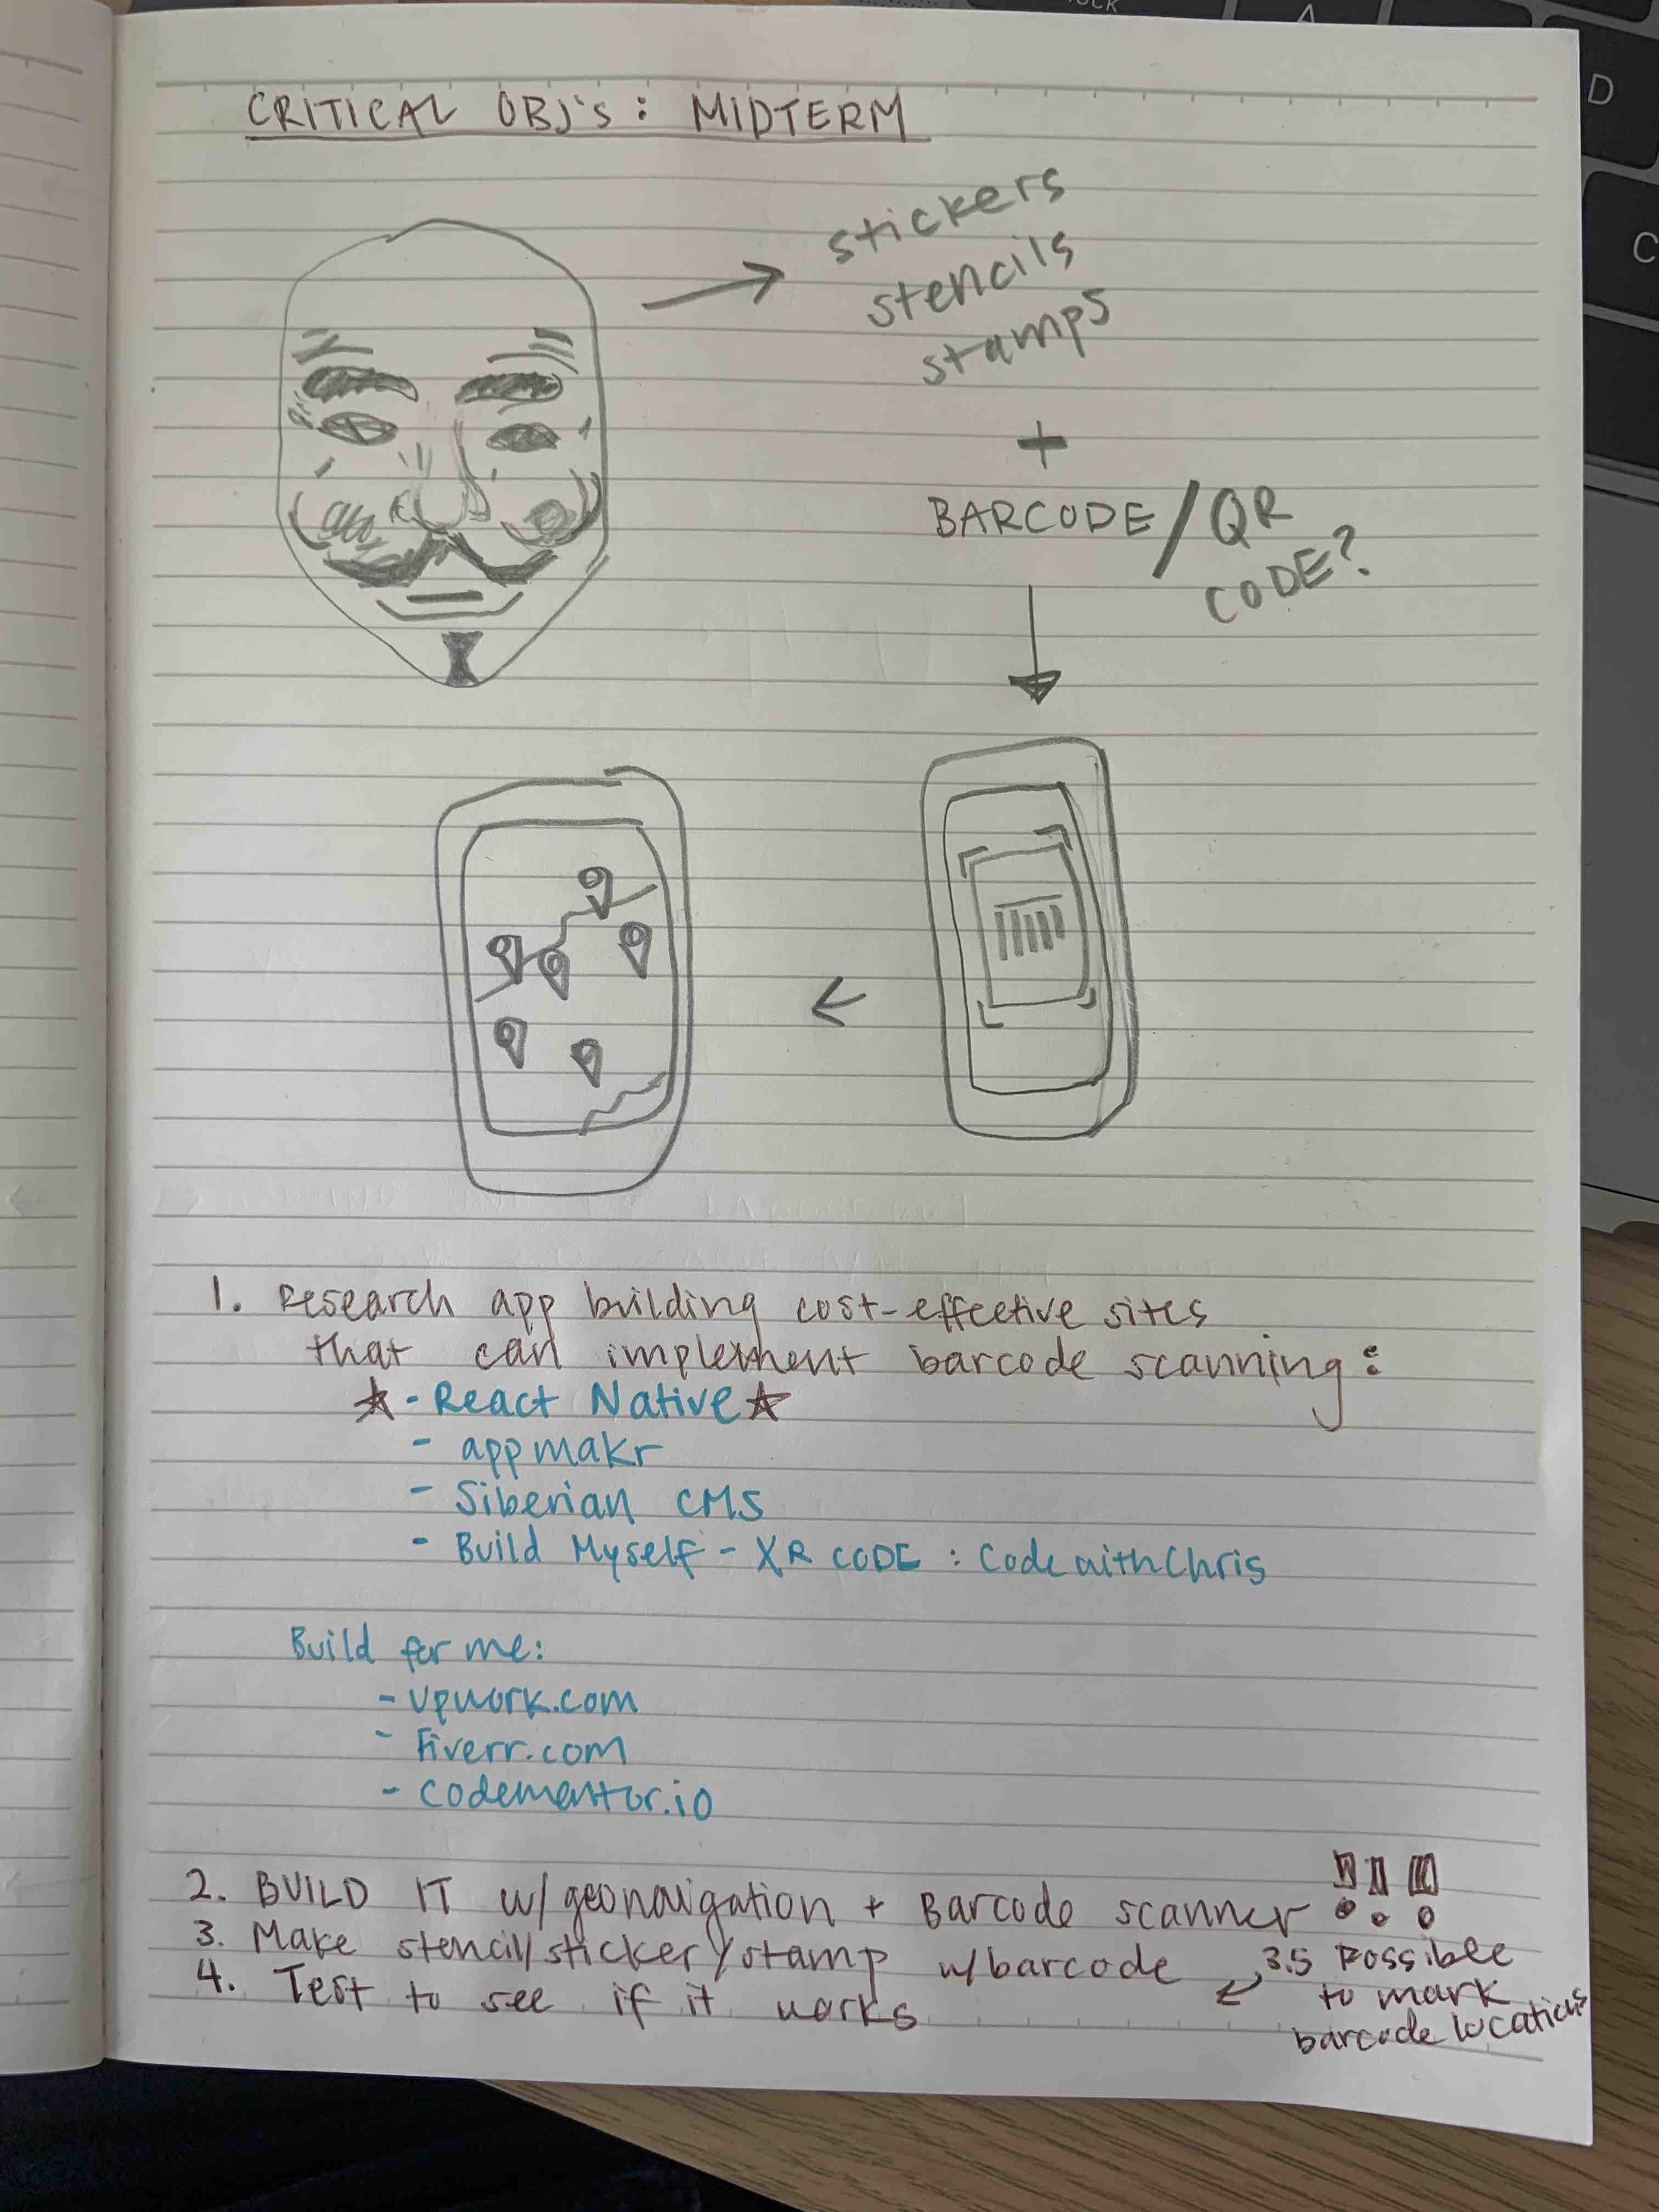 CRITICAL OBJ'S : MIDTERM
stickers
stencils
stamps
+
BARCODE / QR
CODE?
1. Research app building cost-effective sites
that can implement barcode scanning :
☆ - React Native ☆
- appmakr
- Siberian CMS
- Build Myself - XR CODE : CodewithChris
Build for me:
- upwork.com
- Fiverr.com
- codementor.io
2. BUILD IT w/geonavigation + Barcode scanner !!!
3. Make stencil/sticker/stamp w/barcode
3.5 Possible
to mark
barcode locations
4. Test to see if it works
D
C
A